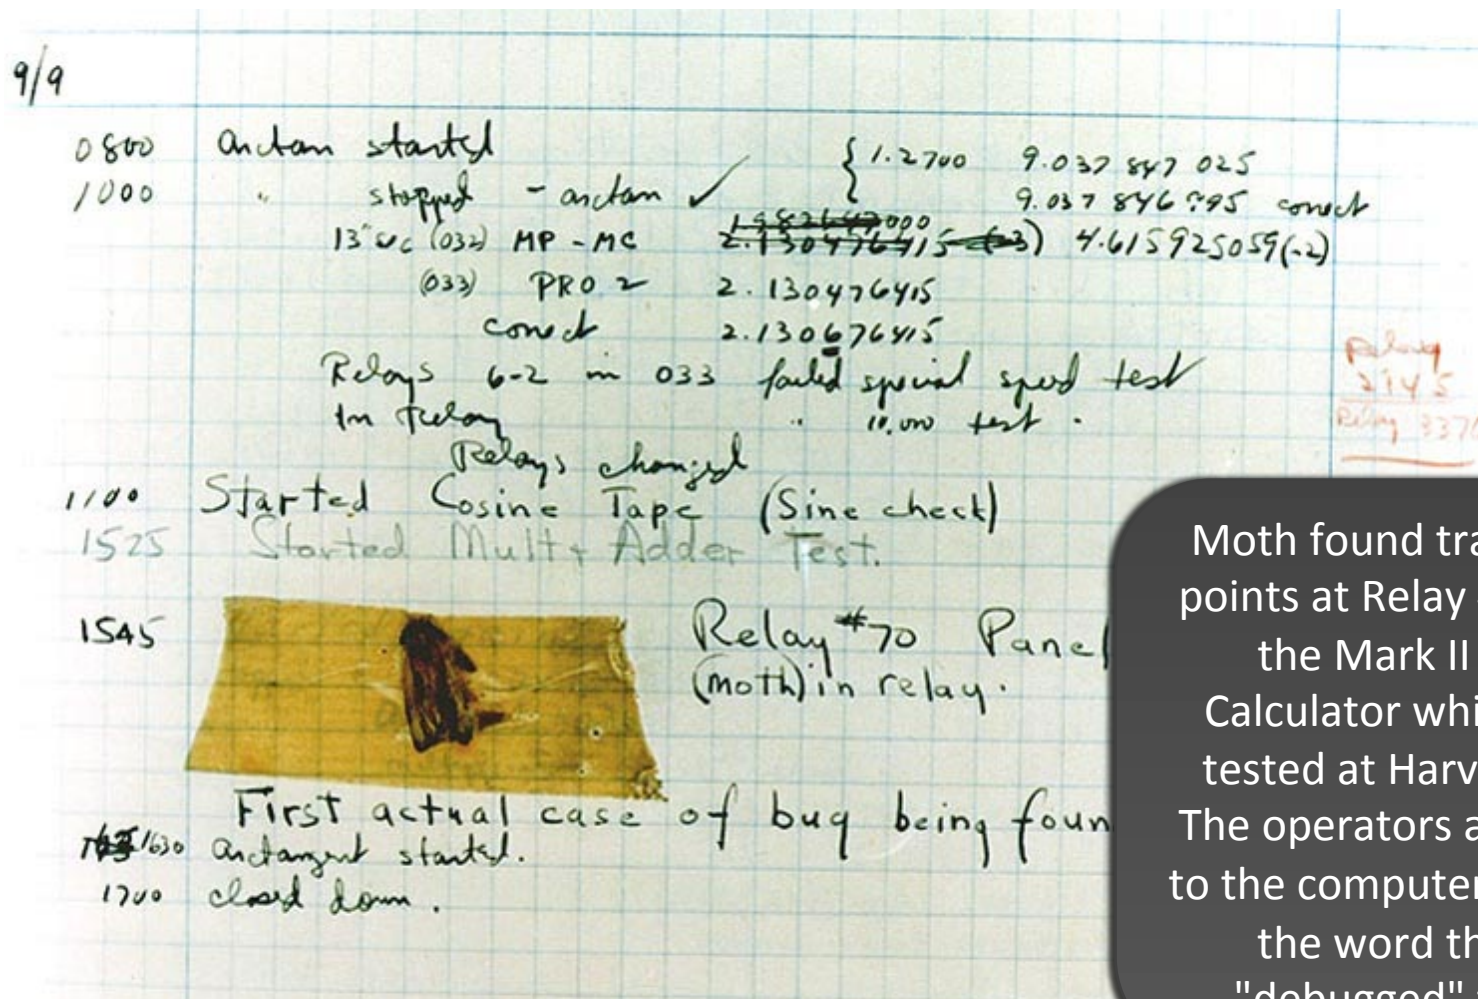 9/9
0800 arctan started { 1.2700 9.037 847 025
1000 " stopped - arctan ✓ 9.037 846 795 correct
13" sec (032) MP - MC 2.130476415 (-3) 4.615925059(-2)
(033) PRO 2 2.130476415
correct 2.130676415
Relays 6-2 in 033 failed special speed test
In Relay " 10,000 test .
Relay
2145
Relay 3370
Relays changed
1100 Started Cosine Tape (Sine check)
1525 Started Mult + Adder Test.
1545 Relay #70 Panel
(moth) in relay.
First actual case of bug being foun
1630 arctangent started.
1700 closed down .
Moth found tra
points at Relay
the Mark II
Calculator whi
tested at Harv
The operators a
to the computer
the word th
"debugged"